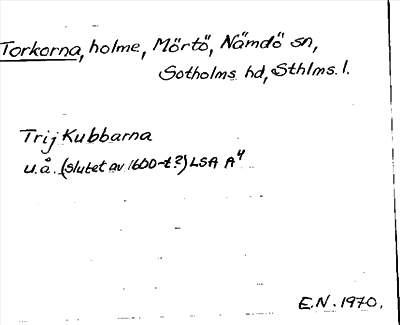 Torkorna, holme, Mörtö, Nämdö sn,
Sotholms hd, Sthlms. l.
Trij Kubbarna
u.å. (slutet av 1600-t?) LSA A4
E.N. 1970.